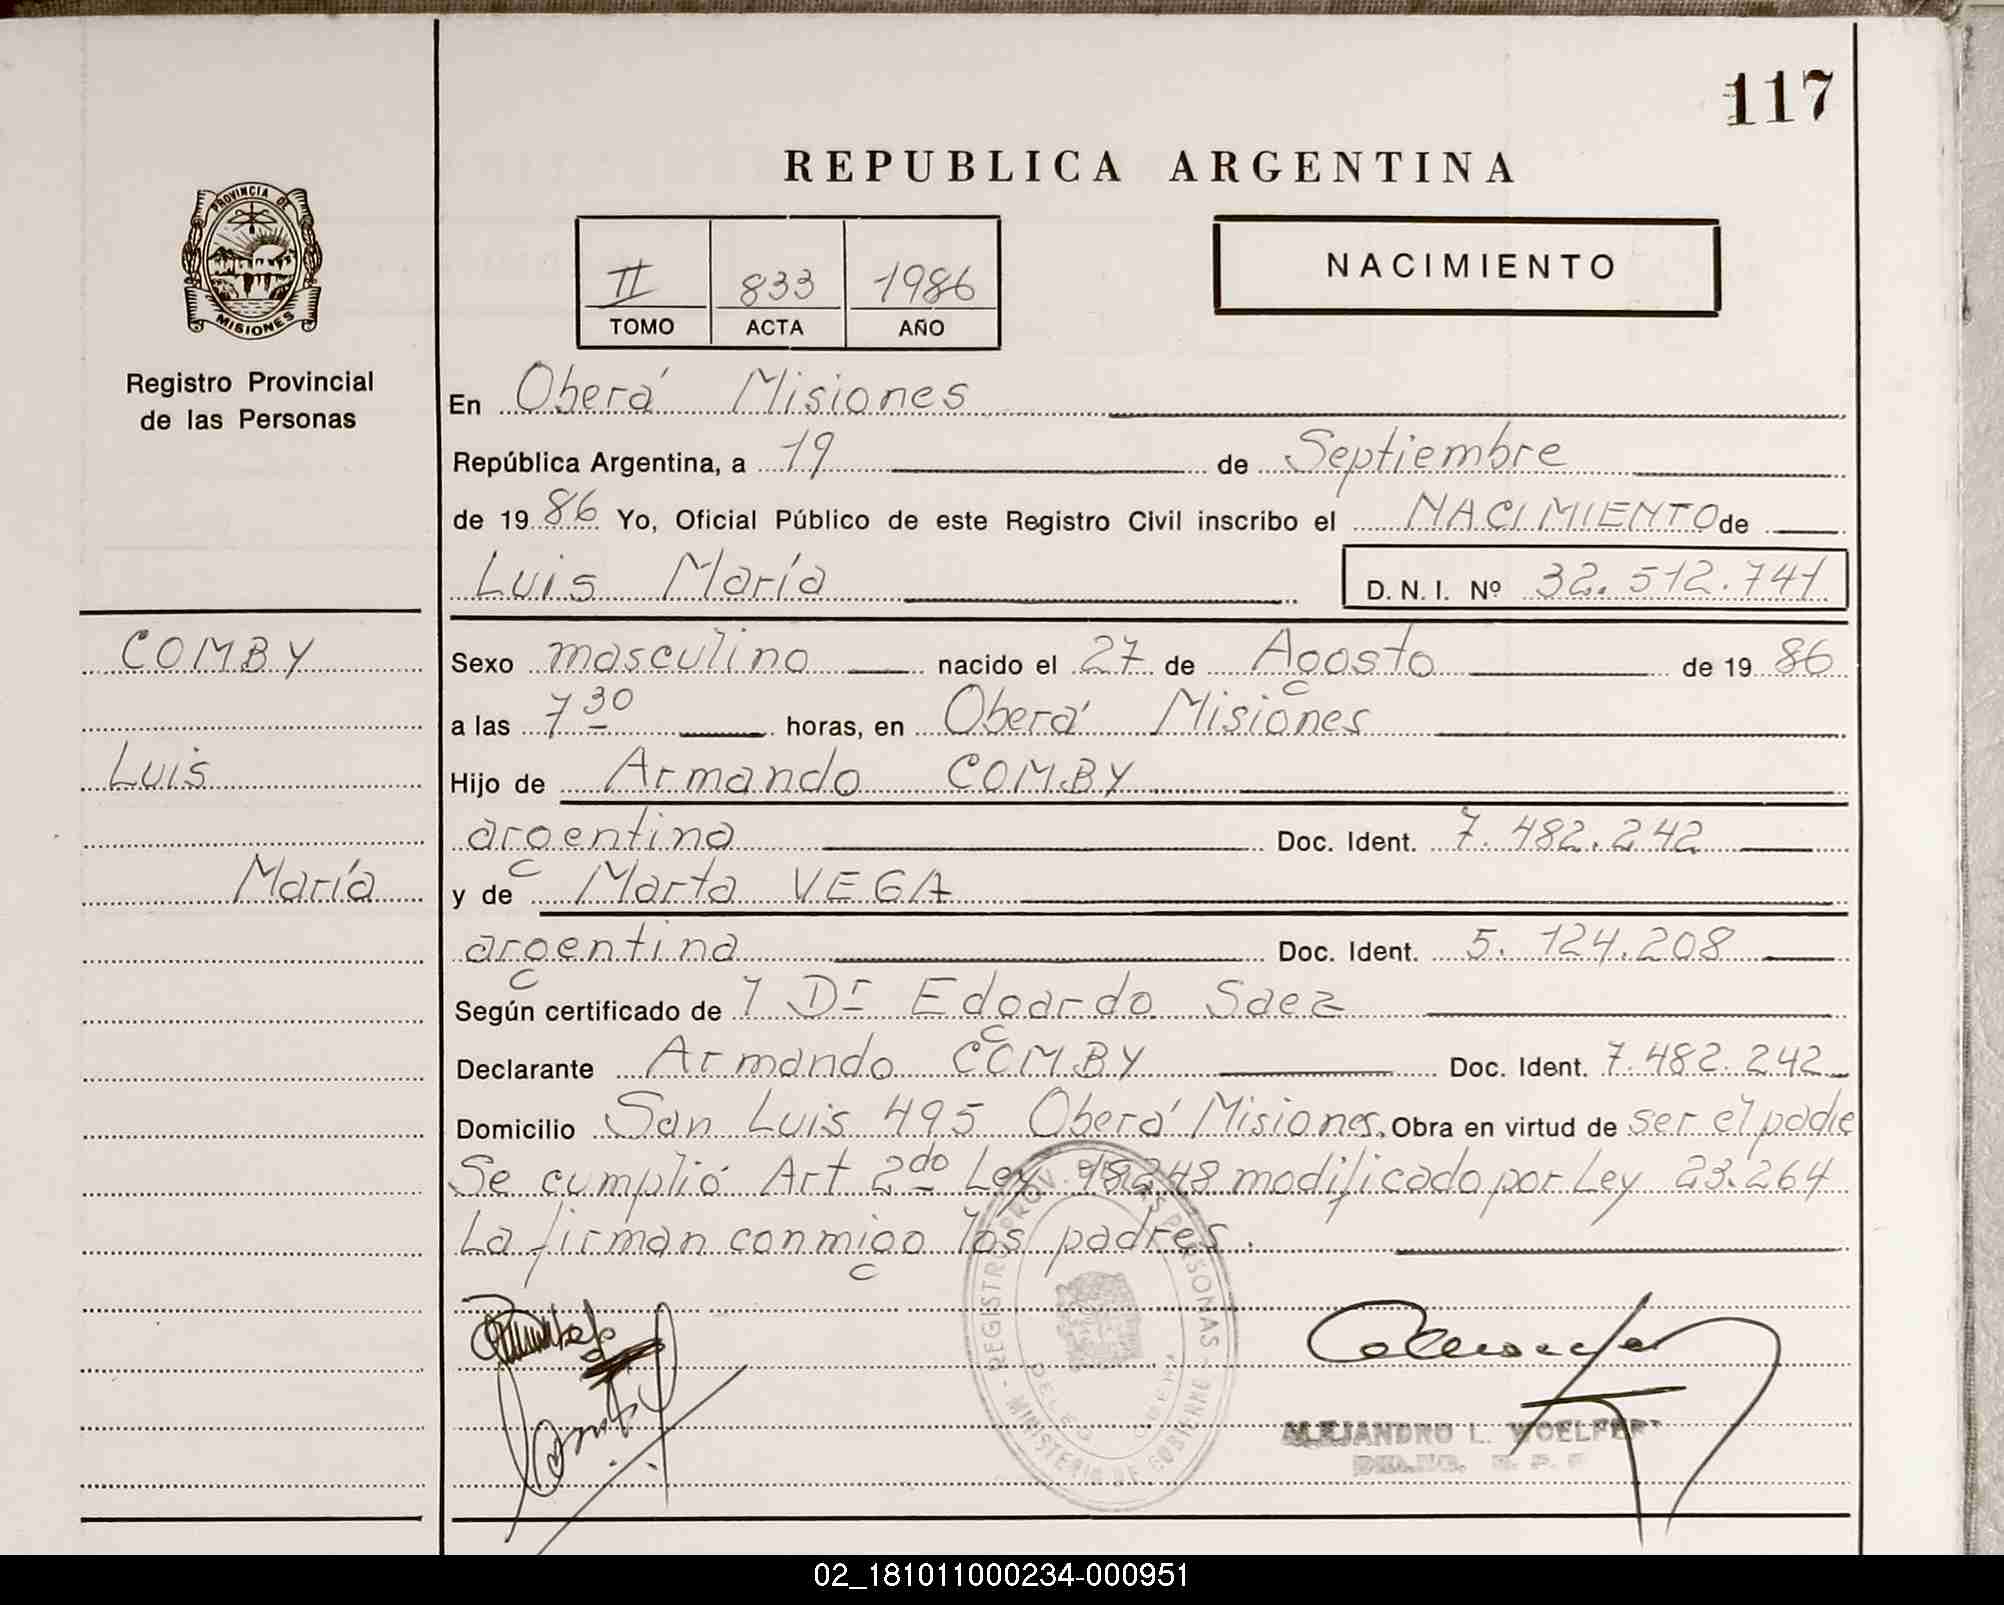 117
REPUBLICA ARGENTINA
PROVINCIA DE
MISIONES
Registro Provincial
de las Personas
II 833 1986
TOMO ACTA AÑO
NACIMIENTO
En Oberá Misiones
República Argentina, a 19 de Septiembre
de 1986 Yo, Oficial Público de este Registro Civil inscribo el NACIMIENTO de
Luis María D. N. I. Nº 32.512.741
COMBY
Sexo masculino nacido el 27 de Agosto de 1986
a las 7 30 horas, en Oberá Misiones
Luis
Hijo de Armando COMBY
argentina Doc. Ident. 7.482.242
María
y de Marta VEGA
argentina Doc. Ident. 5.124.208
Según certificado de 1 Dr Edgardo Saez
Declarante Armando COMBY Doc. Ident. 7.482.242
Domicilio San Luis 495 Oberá Misiones. Obra en virtud de ser el padre
Se cumplió Art 2do Ley 18248 modificado por Ley 23.264
La firman conmigo los padres.
REGISTRO PROV. DE LAS PERSONAS
MINISTERIO DE GOBIERNO
ALEJANDRO L. WOELFERT
02_181011000234-000951